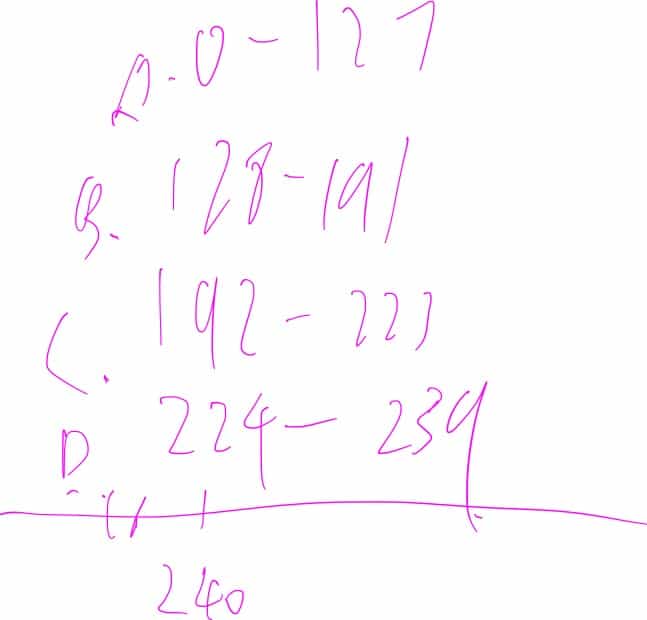 A. 0 - 127
B. 128 - 191
C. 192 - 223
D. 224 - 239
240